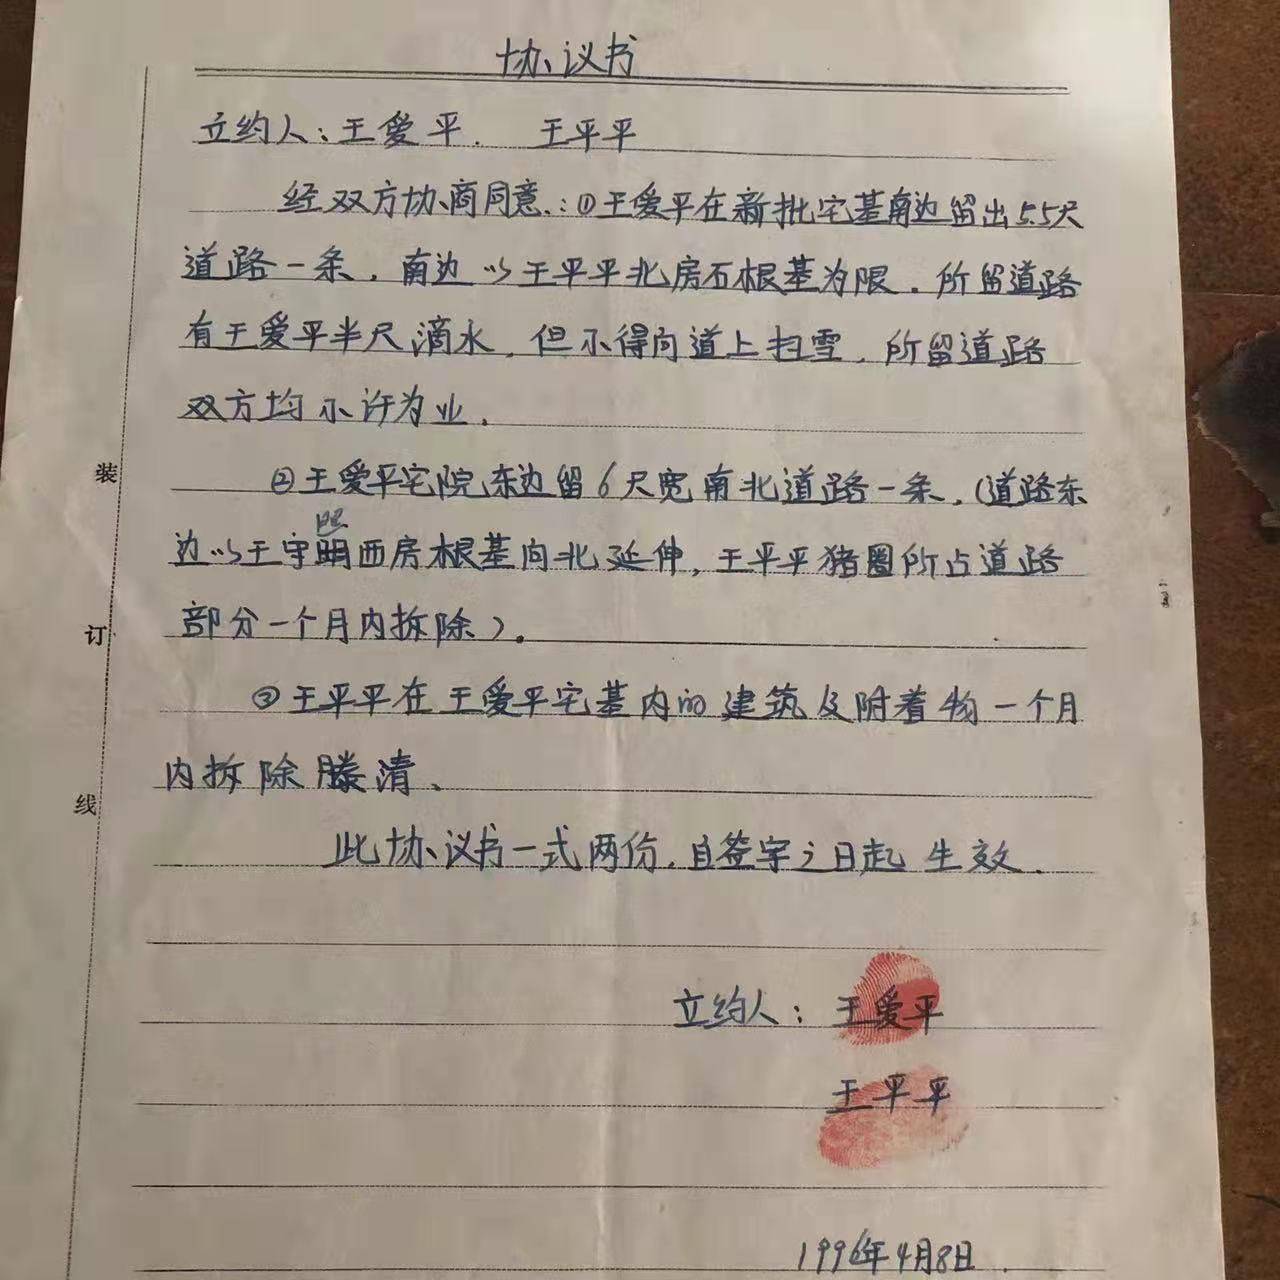 协议书
立约人：王爱平. 王平平
经双方协商同意.：①王爱平在新批宅基南边留出5.5尺
道路一条，南边以王平平北房石根基为限．所留道路
有王爱平半尺滴水，但不得向道上扫雪．所留道路
双方均不许为业．
②王爱平宅院东边留6尺宽南北道路一条，（道路东
照
边以王守明西房根基向北延伸，王平平猪圈所占道路
部分一个月内拆除）。
③王平平在王爱平宅基内的建筑及附着物一个月
内拆除滕清、
此协议书一式两份，自签字之日起生效．
立约人：王爱平
王平平
1996年4月8日．
装
订
线